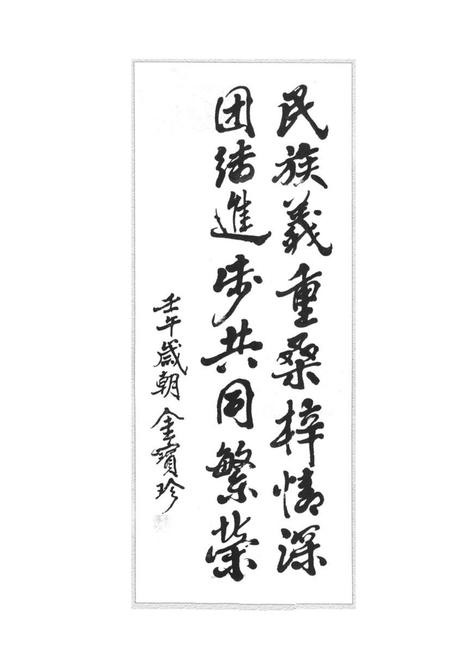 民族義重桑梓情深
团结進步共同繁榮
壬午歲朝 金寶珍